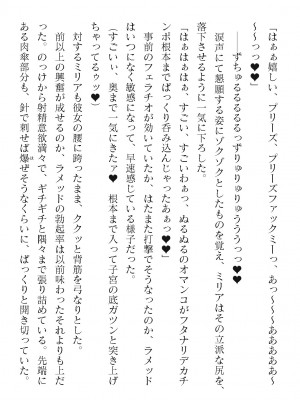 「はぁぁ嬉しい、プリーズ、プリーズファックミーっ、あっ～～～ああああ
～～っっ♥♥」
――ずちゅるるるるっずりゅりゅりゅうううっっ♥♥
涙声にて懇願する姿にゾクゾクとしたものを覚え、ミリアはその立派な尻を、
落下させるように一気に下ろした。
「はぁはぁはぁ、すごい、すごいわぁっ、ぬるぬるのオマンコがフタナリデカチ
ンポ根本までぱっくり呑み込んじゃったあぁっ♥♥」
事前のフェラチオが効いていたか、はたまた打撃でそうなったのか、ラメッド
はいつになく敏感になって、早速感じている様子だった。
（すごいぃ、奥まで一気にきたァ♥　根本まで入って子宮の底ガツンと突き上げ
ちゃってるゥッ♥）
対するミリアも彼女の腰に跨ったまま、ククッと背筋を弓なりとした。
前以上の興奮が成せるのか、ラメッドの勃起率は以前味わったそれよりも上だ
った。のっけから射精意欲満々で、ギチギチと隅々まで張り詰めている。先端に
ある肉傘部分も、針で刺せば爆ぜそうなくらいに、ぱっくりと開き切っていた。